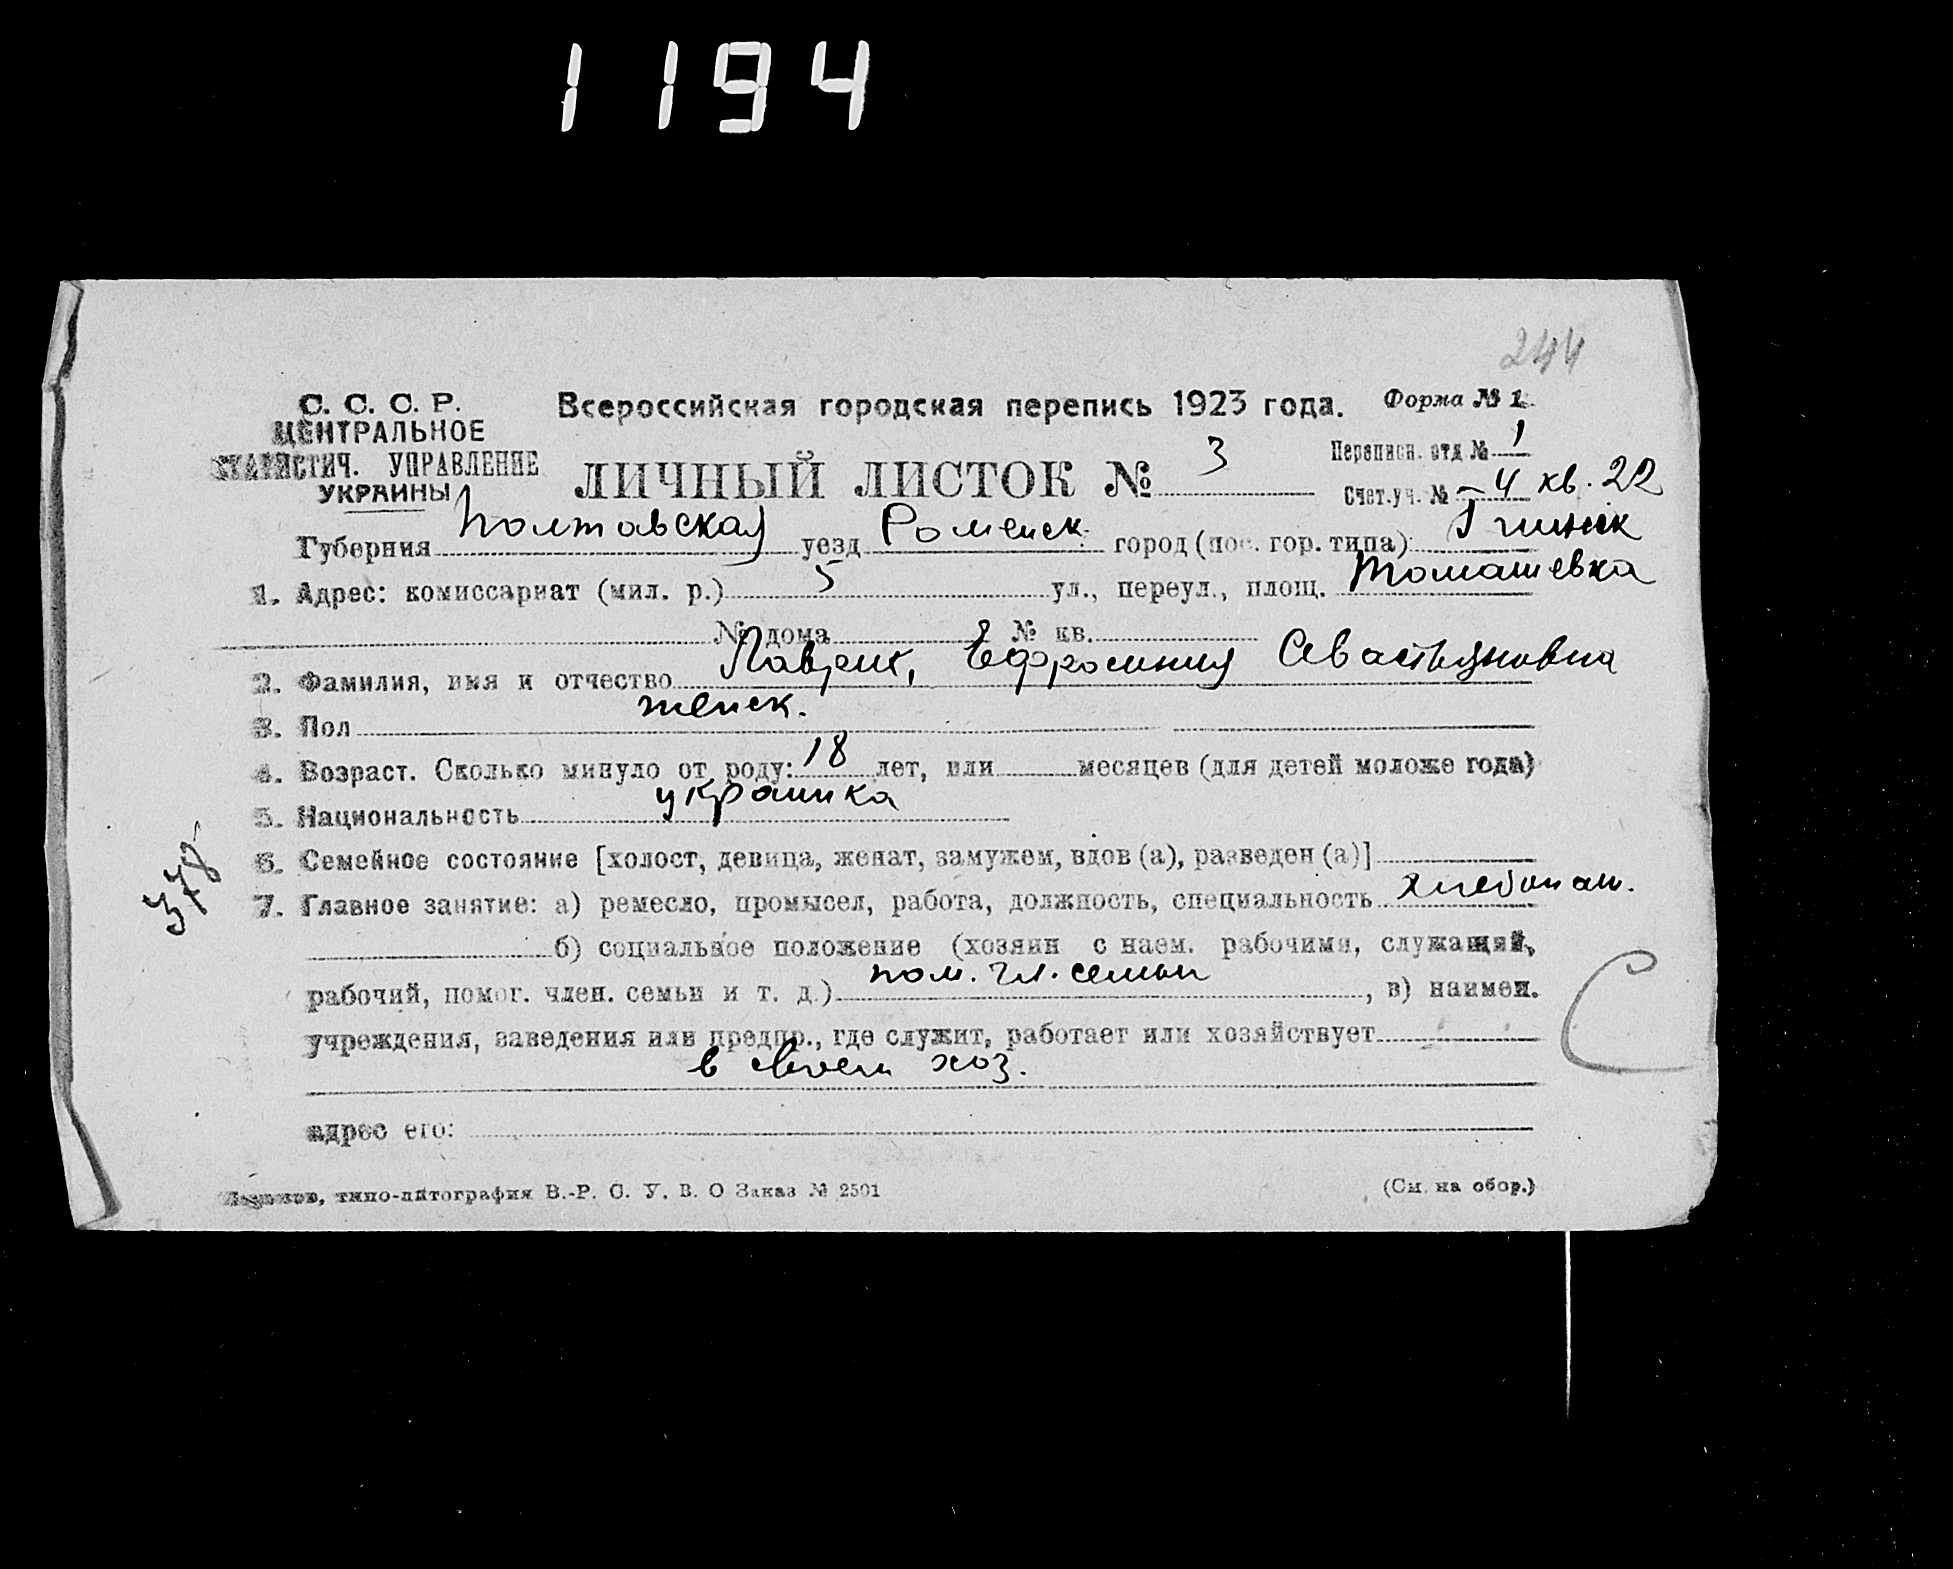 1194
244
С. С. С. Р.
ЦЕНТРАЛЬНОЕ
СТАТИСТИЧ. УПРАВЛЕНИЕ
УКРАИНЫ
Всероссийская городская перепись 1923 года.
Форма № 1.
ЛИЧНЫЙ ЛИСТОК № 3
Переписн. отд № 1
Счет.уч. № 4 кв. 22
Губерния Полтавская уезд Роменск. город (пос. гор. типа): Глинск
1. Адрес: комиссариат (мил. р.) 5 ул., переул., площ. Томашевка
№ дома № кв.
2. Фамилия, имя и отчество Ефросиния Севастьяновна
3. Пол женск.
4. Возраст. Сколько минуло от роду: 18 лет, или месяцев (для детей моложе года)
5. Национальность украинка
6. Семейное состояние [холост, девица, женат, замужем, вдов (а), разведен (а)]
378
7. Главное занятие: а) ремесло, промысел, работа, должность, специальность хлебопаш.
б) социальное положение (хозяин с наем. рабочими, служащий,
рабочий, помог. член. семьи и т. д.) пом. чл. семьи , в) наимен.
учреждения, заведения или предпр., где служит, работает или хозяйствует
в своем хоз.
С
адрес его:
типо-литография В.-Р. С. У. В. О Заказ № 2501
(См. на обор.)